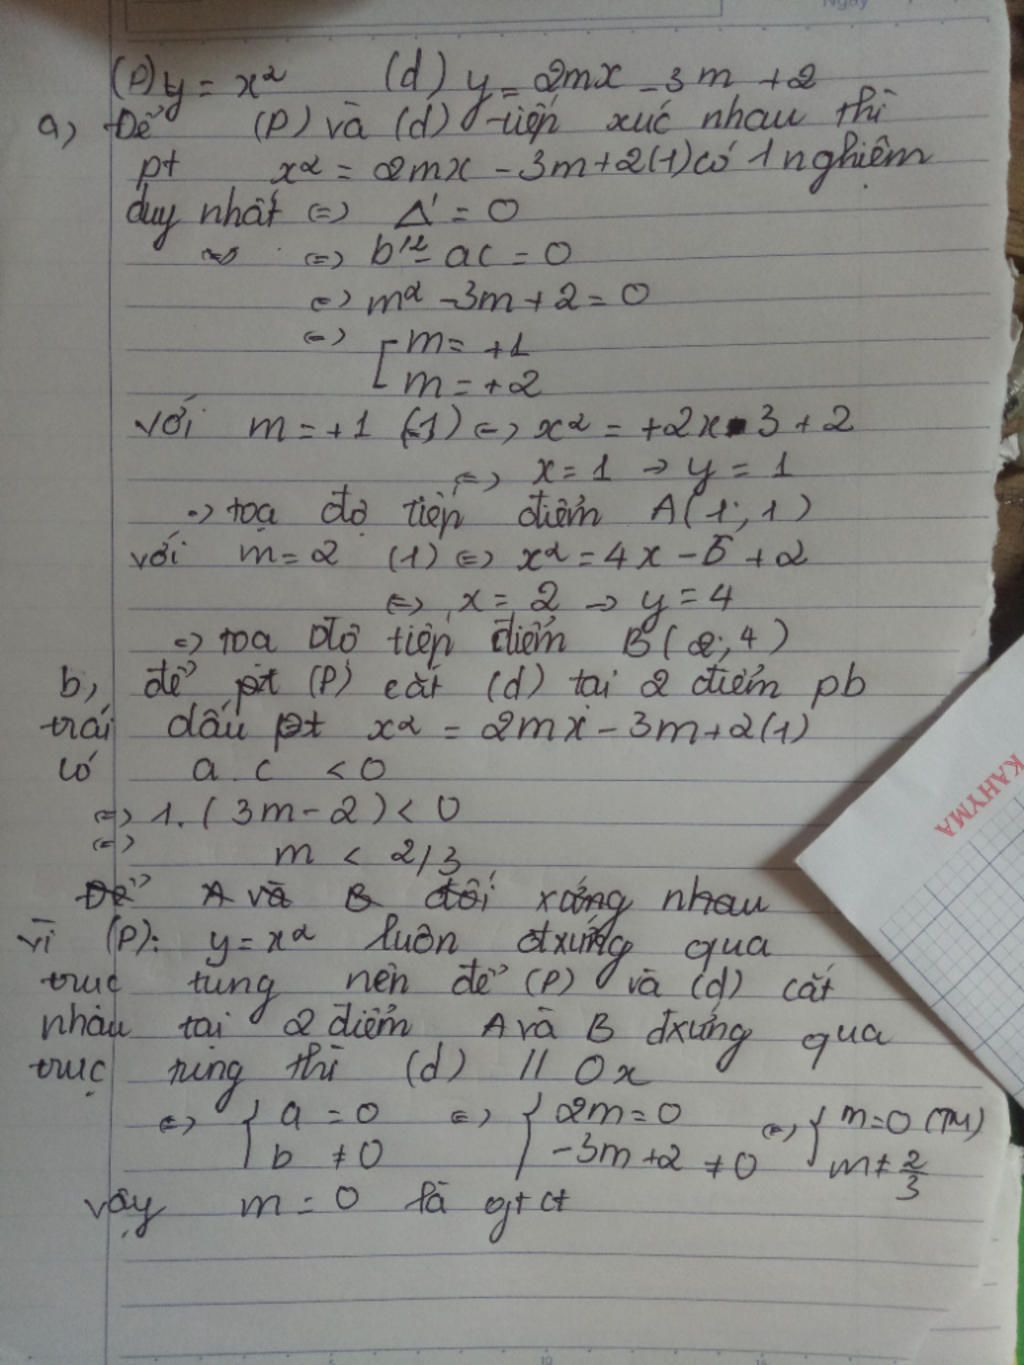 (P) y = x² (d) y = 2mx - 3m + 2
a, Để (P) và (d) tiếp xúc nhau thì
pt x² = 2mx - 3m + 2 (1) có 1 nghiệm
duy nhất (=) Δ' = 0
(=) b'² - ac = 0
(=) m² - 3m + 2 = 0
(=) [ m = +1
m = +2
với m = +1 (1) (=) x² = +2x - 3 + 2
(=) x = 1 → y = 1
=) toạ độ tiếp điểm A(1; 1)
với m = 2 (1) (=) x² = 4x - 6 + 2
(=) x = 2 → y = 4
=) toạ độ tiếp điểm B(2; 4)
b, để pt (P) cắt (d) tại 2 điểm pb
trái dấu pt x² = 2mx - 3m + 2 (1)
có a.c < 0
(=) 1.(3m - 2) < 0
(=) m < 2/3
Để A và B đối xứng nhau
vì (P): y = x² luôn đxứng qua
trục tung nên để (P) và (d) cắt
nhau tại 2 điểm A và B đxứng qua
trục tung thì (d) // Ox
(=) { a = 0 (=) { 2m = 0 (=) { m = 0 (TM)
b ≠ 0 -3m + 2 ≠ 0 m ≠ 2/3
vậy m = 0 là gt ct
KAHYMA